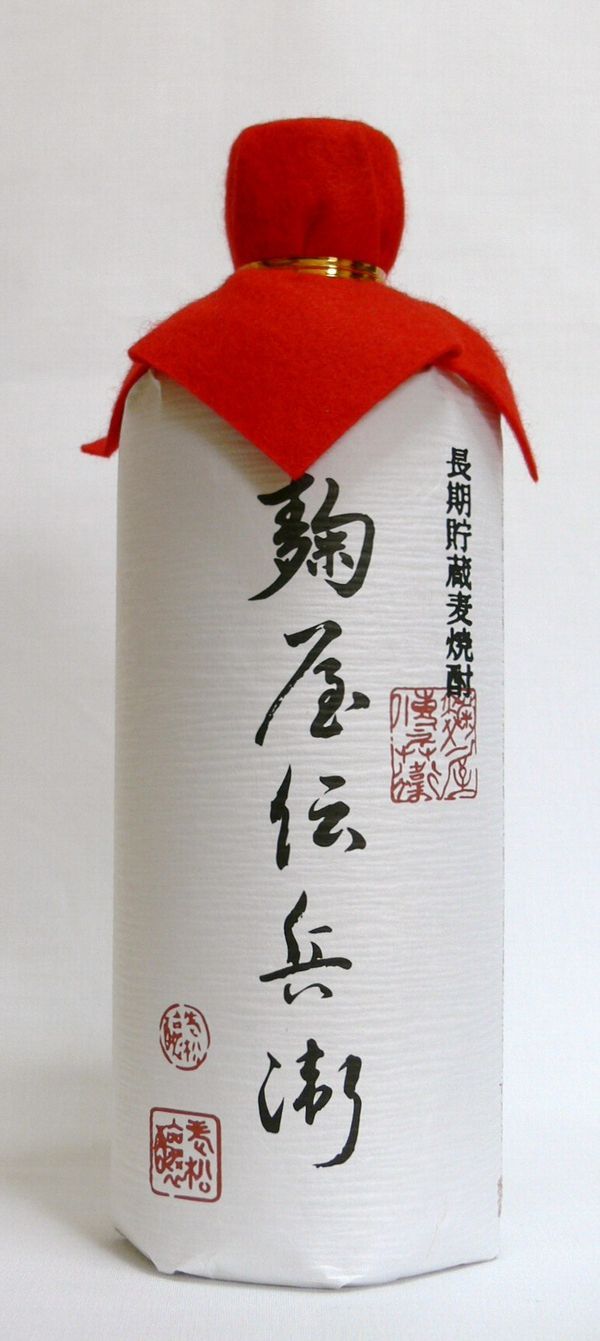 長期貯蔵麦焼酎
麹屋伝兵衛